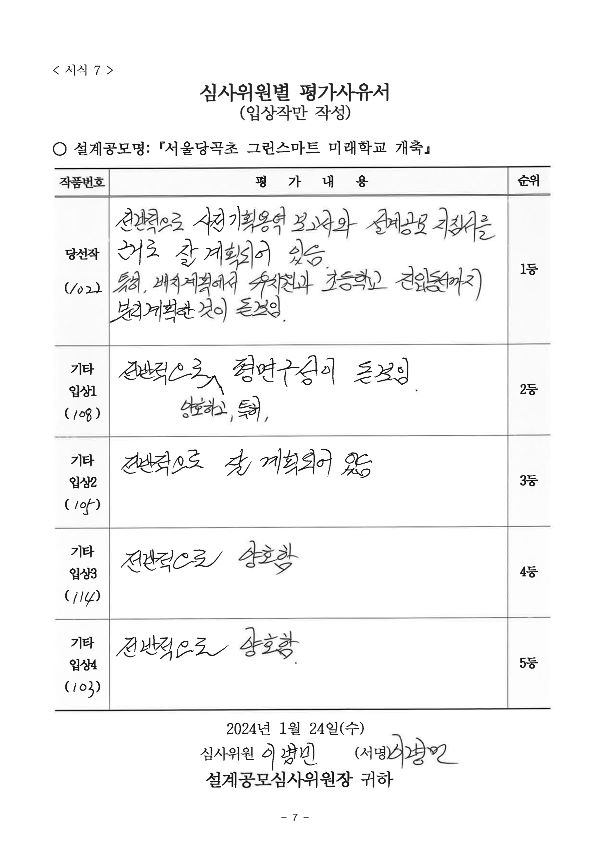 < 서식 7 >
심사위원별 평가사유서
(입상작만 작성)
○ 설계공모명: 『서울당곡초 그린스마트 미래학교 개축』
작품번호 평 가 내 용 순위
당선작
(102)
전반적으로 사전기획용역 보고서와 설계공모 지침서를
근거로 잘 계획되어 있음
특히, 배치계획에서 유치원과 초등학교 진입동선까지
분리계획한 것이 돋보임.
1등
기타
입상1
(108)
전반적으로 양호하고, 특히, 평면구성이 돋보임.
2등
기타
입상2
(105)
전반적으로 잘 계획되어 있음
3등
기타
입상3
(114)
전반적으로 양호함
4등
기타
입상4
(103)
전반적으로 양호함.
5등
2024년 1월 24일(수)
심사위원 (서명)
설계공모심사위원장 귀하
- 7 -